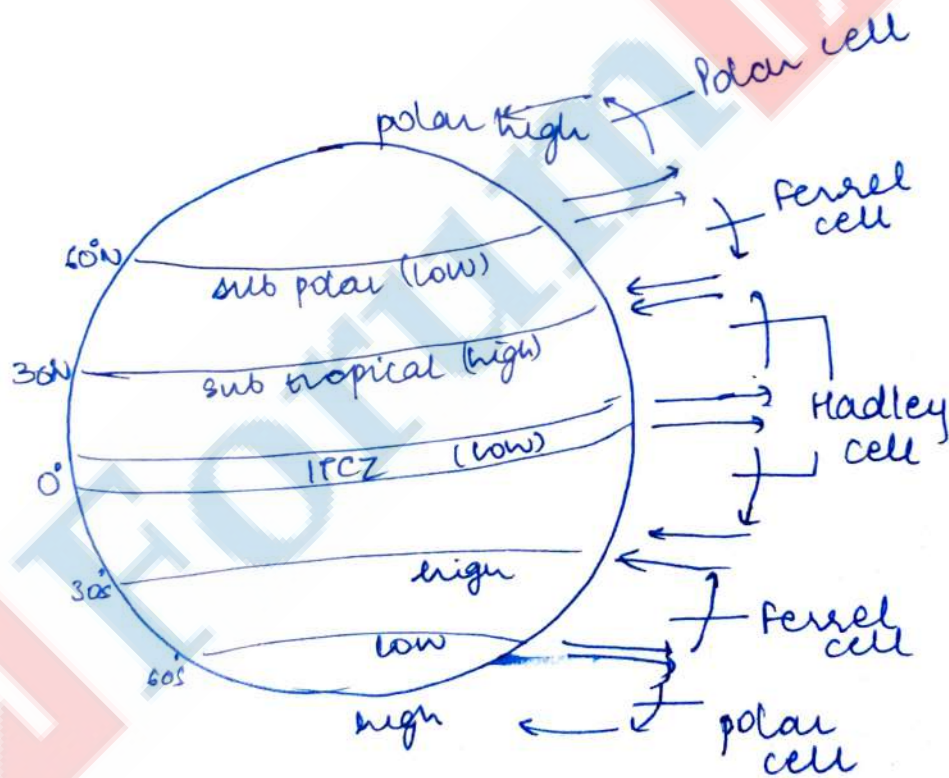 Polar cell
polar high
Ferrel
cell
60°N
sub polar (low)
30N
sub tropical (high)
Hadley
cell
ITCZ (low)
0°
30s
high
Ferrel
cell
low
60s
high
polar
cell
Forum